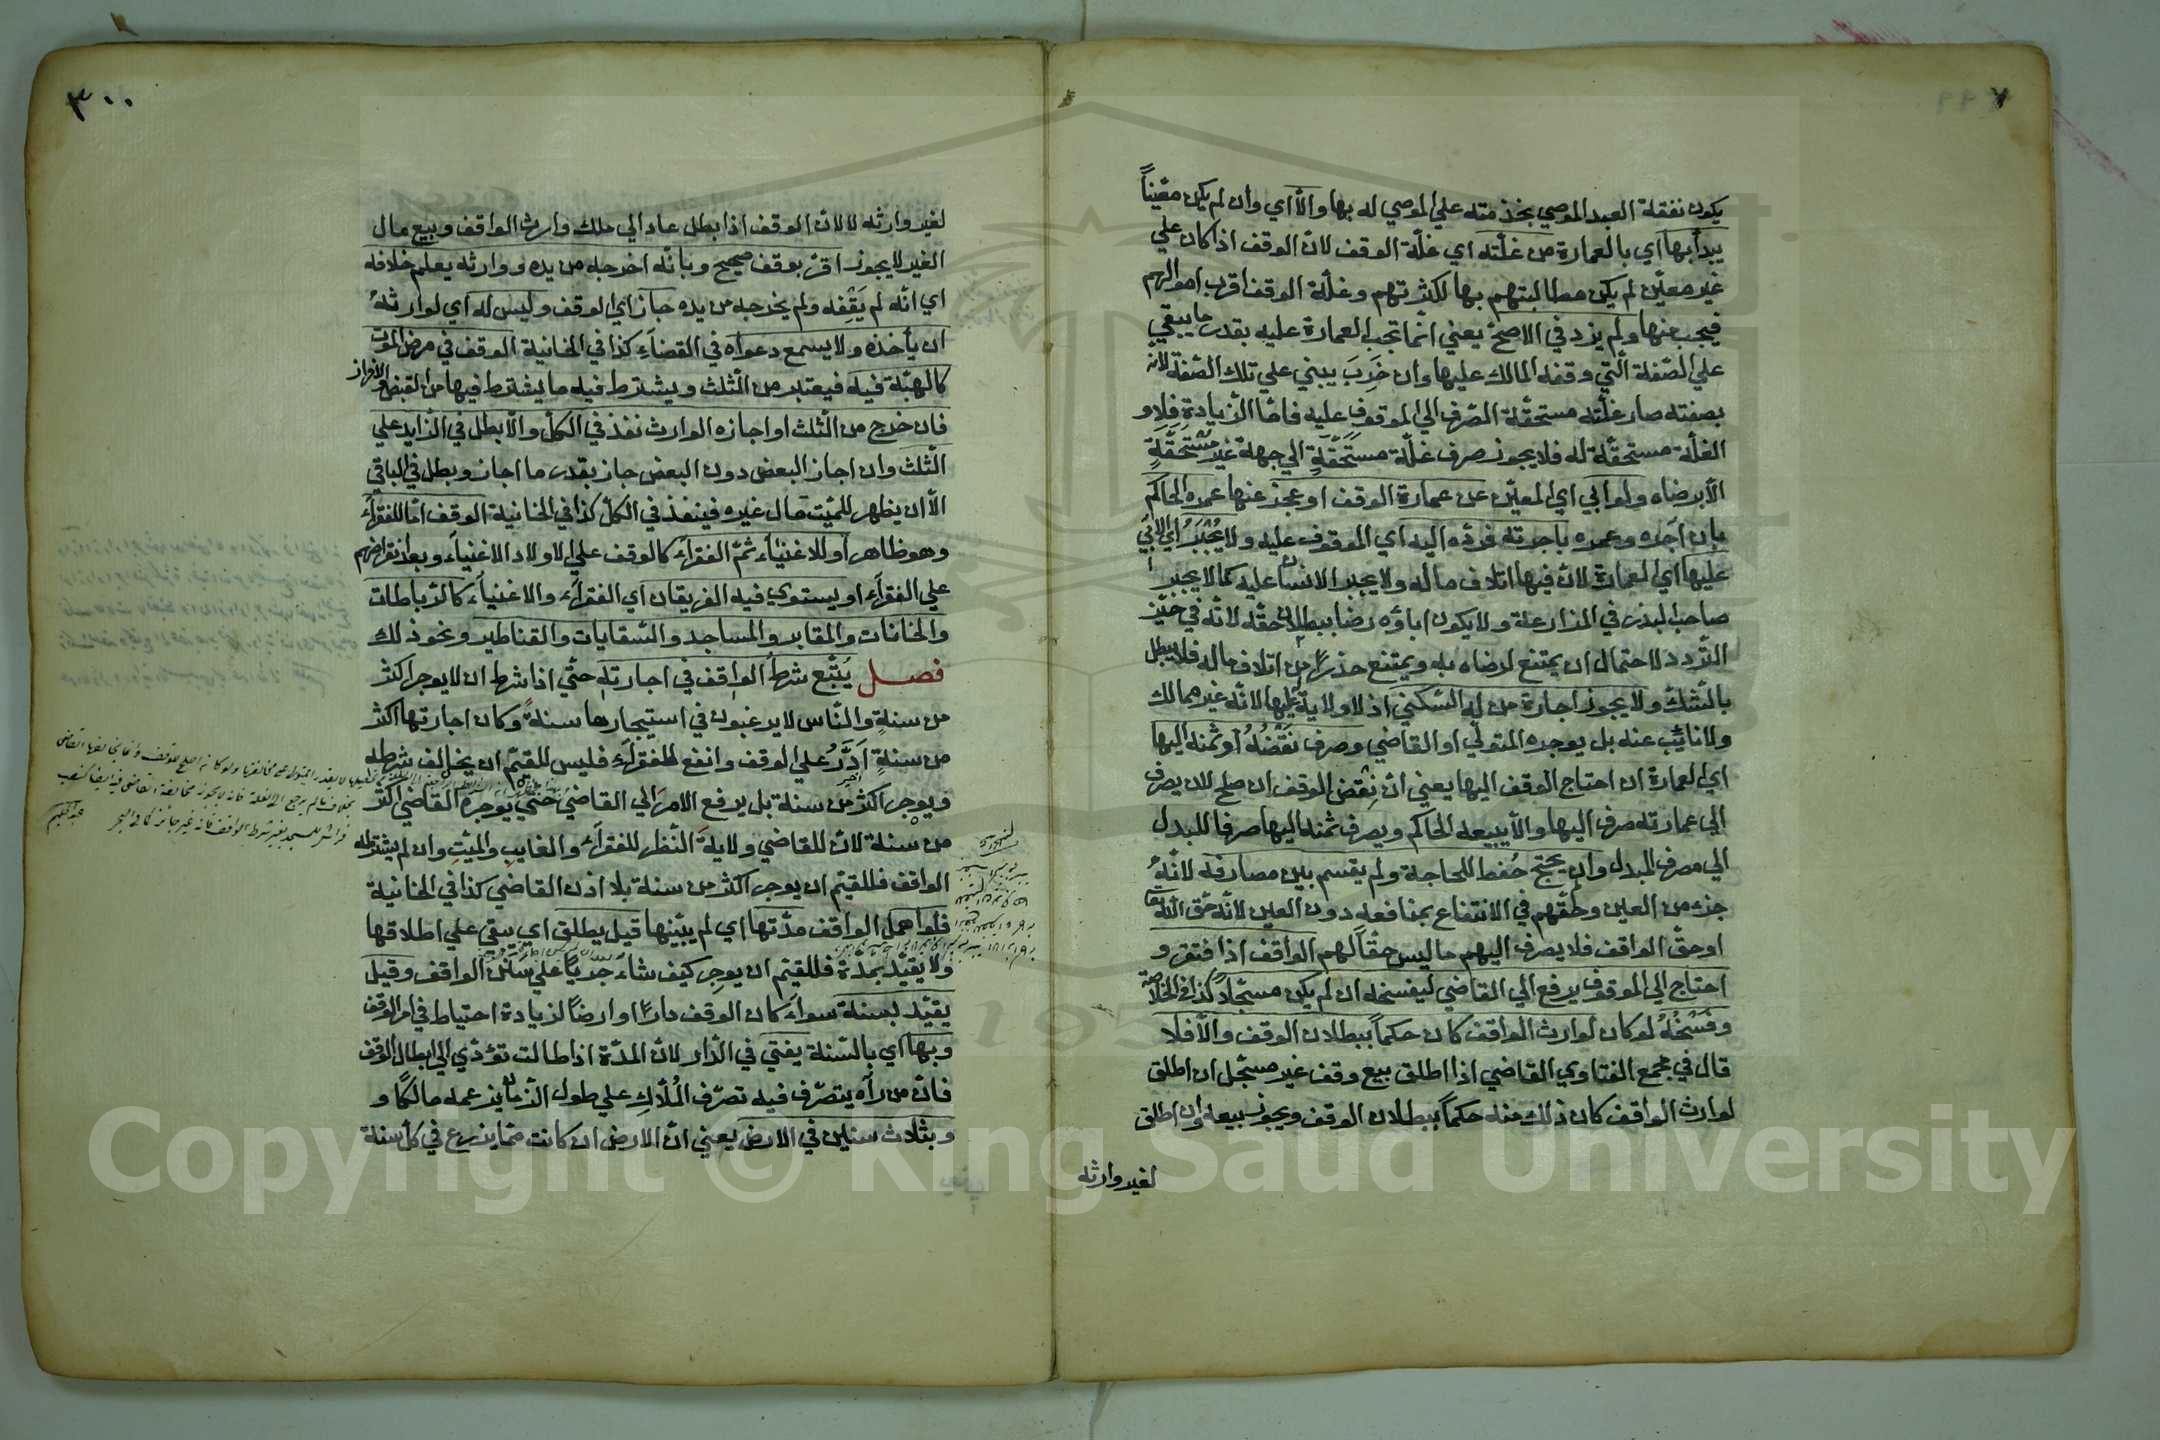 يكون نفقة العبد الموصي بخدمته علي الموصي له بها والّا اي وان لم يكن معّيناً
يبدأ بها اي بالعمارة من غلّته اي غلّة الوقف لانّ الوقف اذا كان علي
غير معيّن لم يكن مطالبتهم بها لكثرتهم وغلّة الوقف اقرب اموالهم
فيجب منها ولم يزد في الاصحّ يعني انّما تجب العمارة عليه بقدر ما يبقي
علي الصّفة الّتي وقفه المالك عليها وان خَرِبَ يبني علي تلك الصّفة لانّه
بصفته صار غلّته مستحقّة الصّرف الي الموقوف عليه فامّا الزّيادة فلا و
الغلّة مستحقّة له فلا يجوز صرف غلّة مستَحَقَّةٍ الي جهة غير مُسْتَحَقَّةٍ
الّا برضاه ولو ابي اي المعيّن عن عمارة الوقف او عجز عنها عمره الحاكم
بان آجره وعمره باجرته فردّه اليه اي الموقوف عليه ولا يُجْبَرُ اي الابي
عليها اي العمارة لانّ فيها اتلاف ماله ولا يجبر الانسان عليه كما لا يجبر
صاحب البذر في المزارعة ولا يكون اباؤه رضا ببطلان حقّه لانّه في حيّز
التّردد لاحتمال ان يمتنع لرضاه به ويمتنع حذرًا من اتلاف ماله فلا يبطل
بالشّكّ ولا يجوز اجارة من له السّكني اذ لا ولاية عليها لانّه غير مالك
ولا نائب عنه بل يوجره المتولّي او القاضي وصرف نَقْضُهُ او ثمنه اليها
اي العمارة ان احتاج الوقف اليها يعني انّ نِقْض الوقف ان صلح لان يصرف
الي عمارته صرف اليها والّا يبيعه الحاكم ويصرف ثمنه اليها صرفا للبدل
الي مصرف المبدل وان لم يحتج حُفظ للحاجة ولم يقسم بين مصارفه لانّه
جزء من العين وحقّهم في الانتفاع بمنافعه دون العين لانّه حقّ اللّه تعا
او حقّ الواقف فلا يصرف اليهم ما ليس حقّاً لهم الواقف اذا افتقر و
احتاج الي الموقوف يرفع الي القاضي ليفسخه ان لم يكن مسجّلاً كذا في الخلاصة
وفَسْخُهُ لو كان لوارث الواقف كان حكماً ببطلان الوقف والّا فلا
قال في مجمع الفتاوي القاضي اذا اطلق بيع وقف غير مسجّل ان اطلق
لوارث الواقف كان ذلك منه حكماً ببطلان الوقف ويجوز بيعه وان اطلق
لغير وارثه
٣٠٠
لغير وارثه لا لانّ الوقف اذا بطل عاد الي ملك وارث الواقف وبيع مال
الغير لا يجوز اقرّ بوقف صحيح وبانّه اخرجه من يده ووارثه يعلم خلافه
اي انّه لم يَقِفه ولم يخرجه من يده جاز اي الوقف وليس له اي لوارثه
ان يأخذه ولا يسمع دعواه في القضاء كذا في الخانية الوقف في مرض الموت
كالهبة فيه فيعتبر من الثّلث ويشترط فيه ما يشترط فيها من القبض والافراز
فان خرج من الثّلث او اجازه الوارث نفذ في الكلّ والّا بطل في الزّايد علي
الثّلث وان اجاز البعض دون البعض جاز بقدر ما اجاز وبطل في الباقي
الّا ان يظهر للميّت مال غيره فينفذ في الكلّ كذا في الخانية الوقف امّا للفقراء
وهو ظاهر او للاغنياء ثمّ الفقراء كالوقف علي الاولاد الاغنياء وبعد انقراضهم
علي الفقراء او يستوي فيه الفريقان اي الفقراء والاغنياء كالرّباطات
والخانات والمقابر والمساجد والسّقايات والقناطير ونحو ذلك
فصل يُتّبع شرطُ الواقف في اجارته حتّي اذا شرط ان لا يوجر اكثر
من سنةٍ والنّاس لا يرغبون في استيجارها سنةً وكان اجارتها اكثر
من سنةٍ اَدَرَّ علي الوقف وانفع للفقراء فليس للقيّم ان يخالف شرطه
ويوجر اكثر من سنة بل يرفع الامر الي القاضي حتّي يوجره القاضي اكثر
من سنة لانّ للقاضي ولايةَ النّظر للفقراء والغايب والميّت وان لم يشترطه
الواقف فللقيّم ان يوجر اكثر من سنة بلا اذن القاضي كذا في الخانية
فلو اهمل الواقف مدّتها اي لم يبيّنها قيل يطلق اي يبقي علي اطلاقها
ولا يقيّد بمدّة فللقيّم ان يوجر كيف شاء جريًا علي سنن الواقف وقيل
يقيّد بسنة سواء كان الوقف دارًا او ارضًا لزيادة احتياط في امر الوقف
وبها اي بالسّنة يفتي في الدّار لانّ المدّة اذا طالت تؤدّي الي ابطال الوقف
فانّ من رآه يتصّرف فيه تصرّف المُلّاك علي طول الزّمان يزعمه مالكًا و
وبثلاث سنين في الارض يعني انّ الارض ان كانت ممّا يزرع في كلّ سنة
Copyright © King Saud University